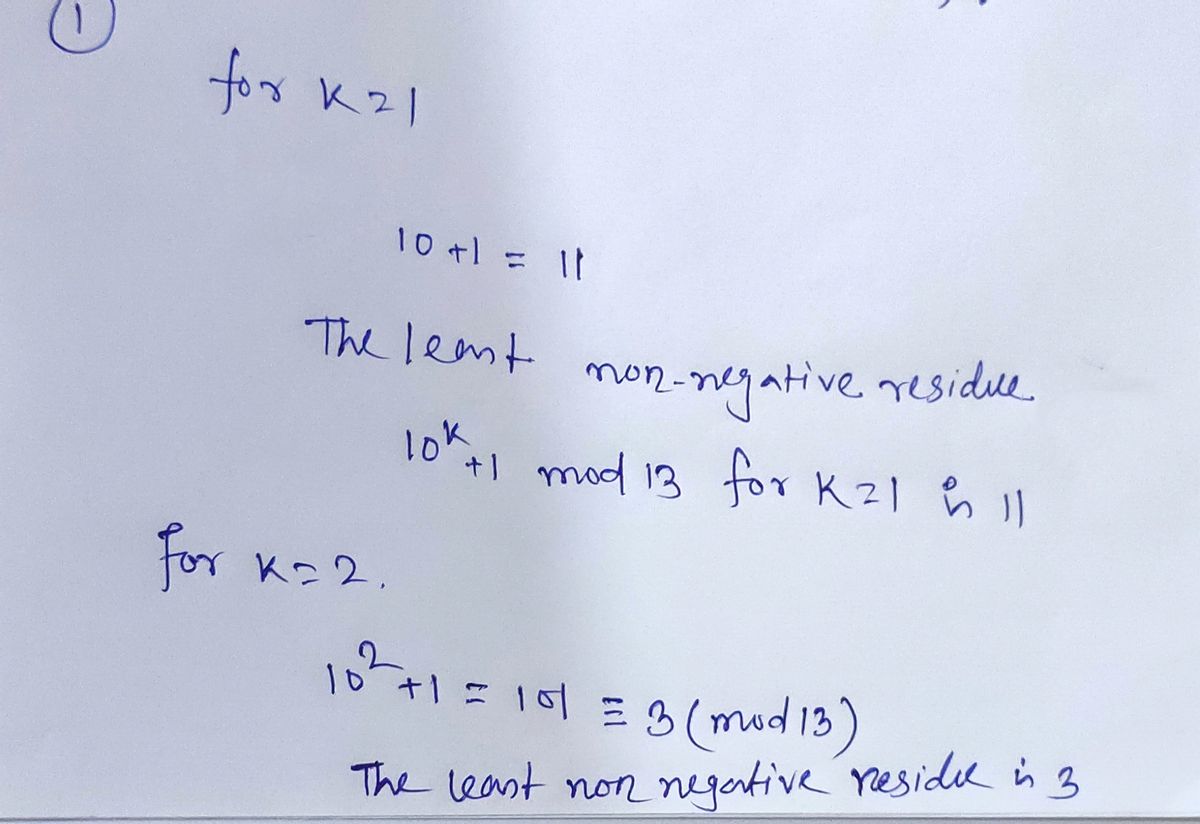 1
for K=1
10+1 = 11
The least non-negative residue
10^K+1 mod 13 for K=1 is 11
for K=2.
10^2+1 = 101 ≡ 3 (mod 13)
The least non negative residue is 3